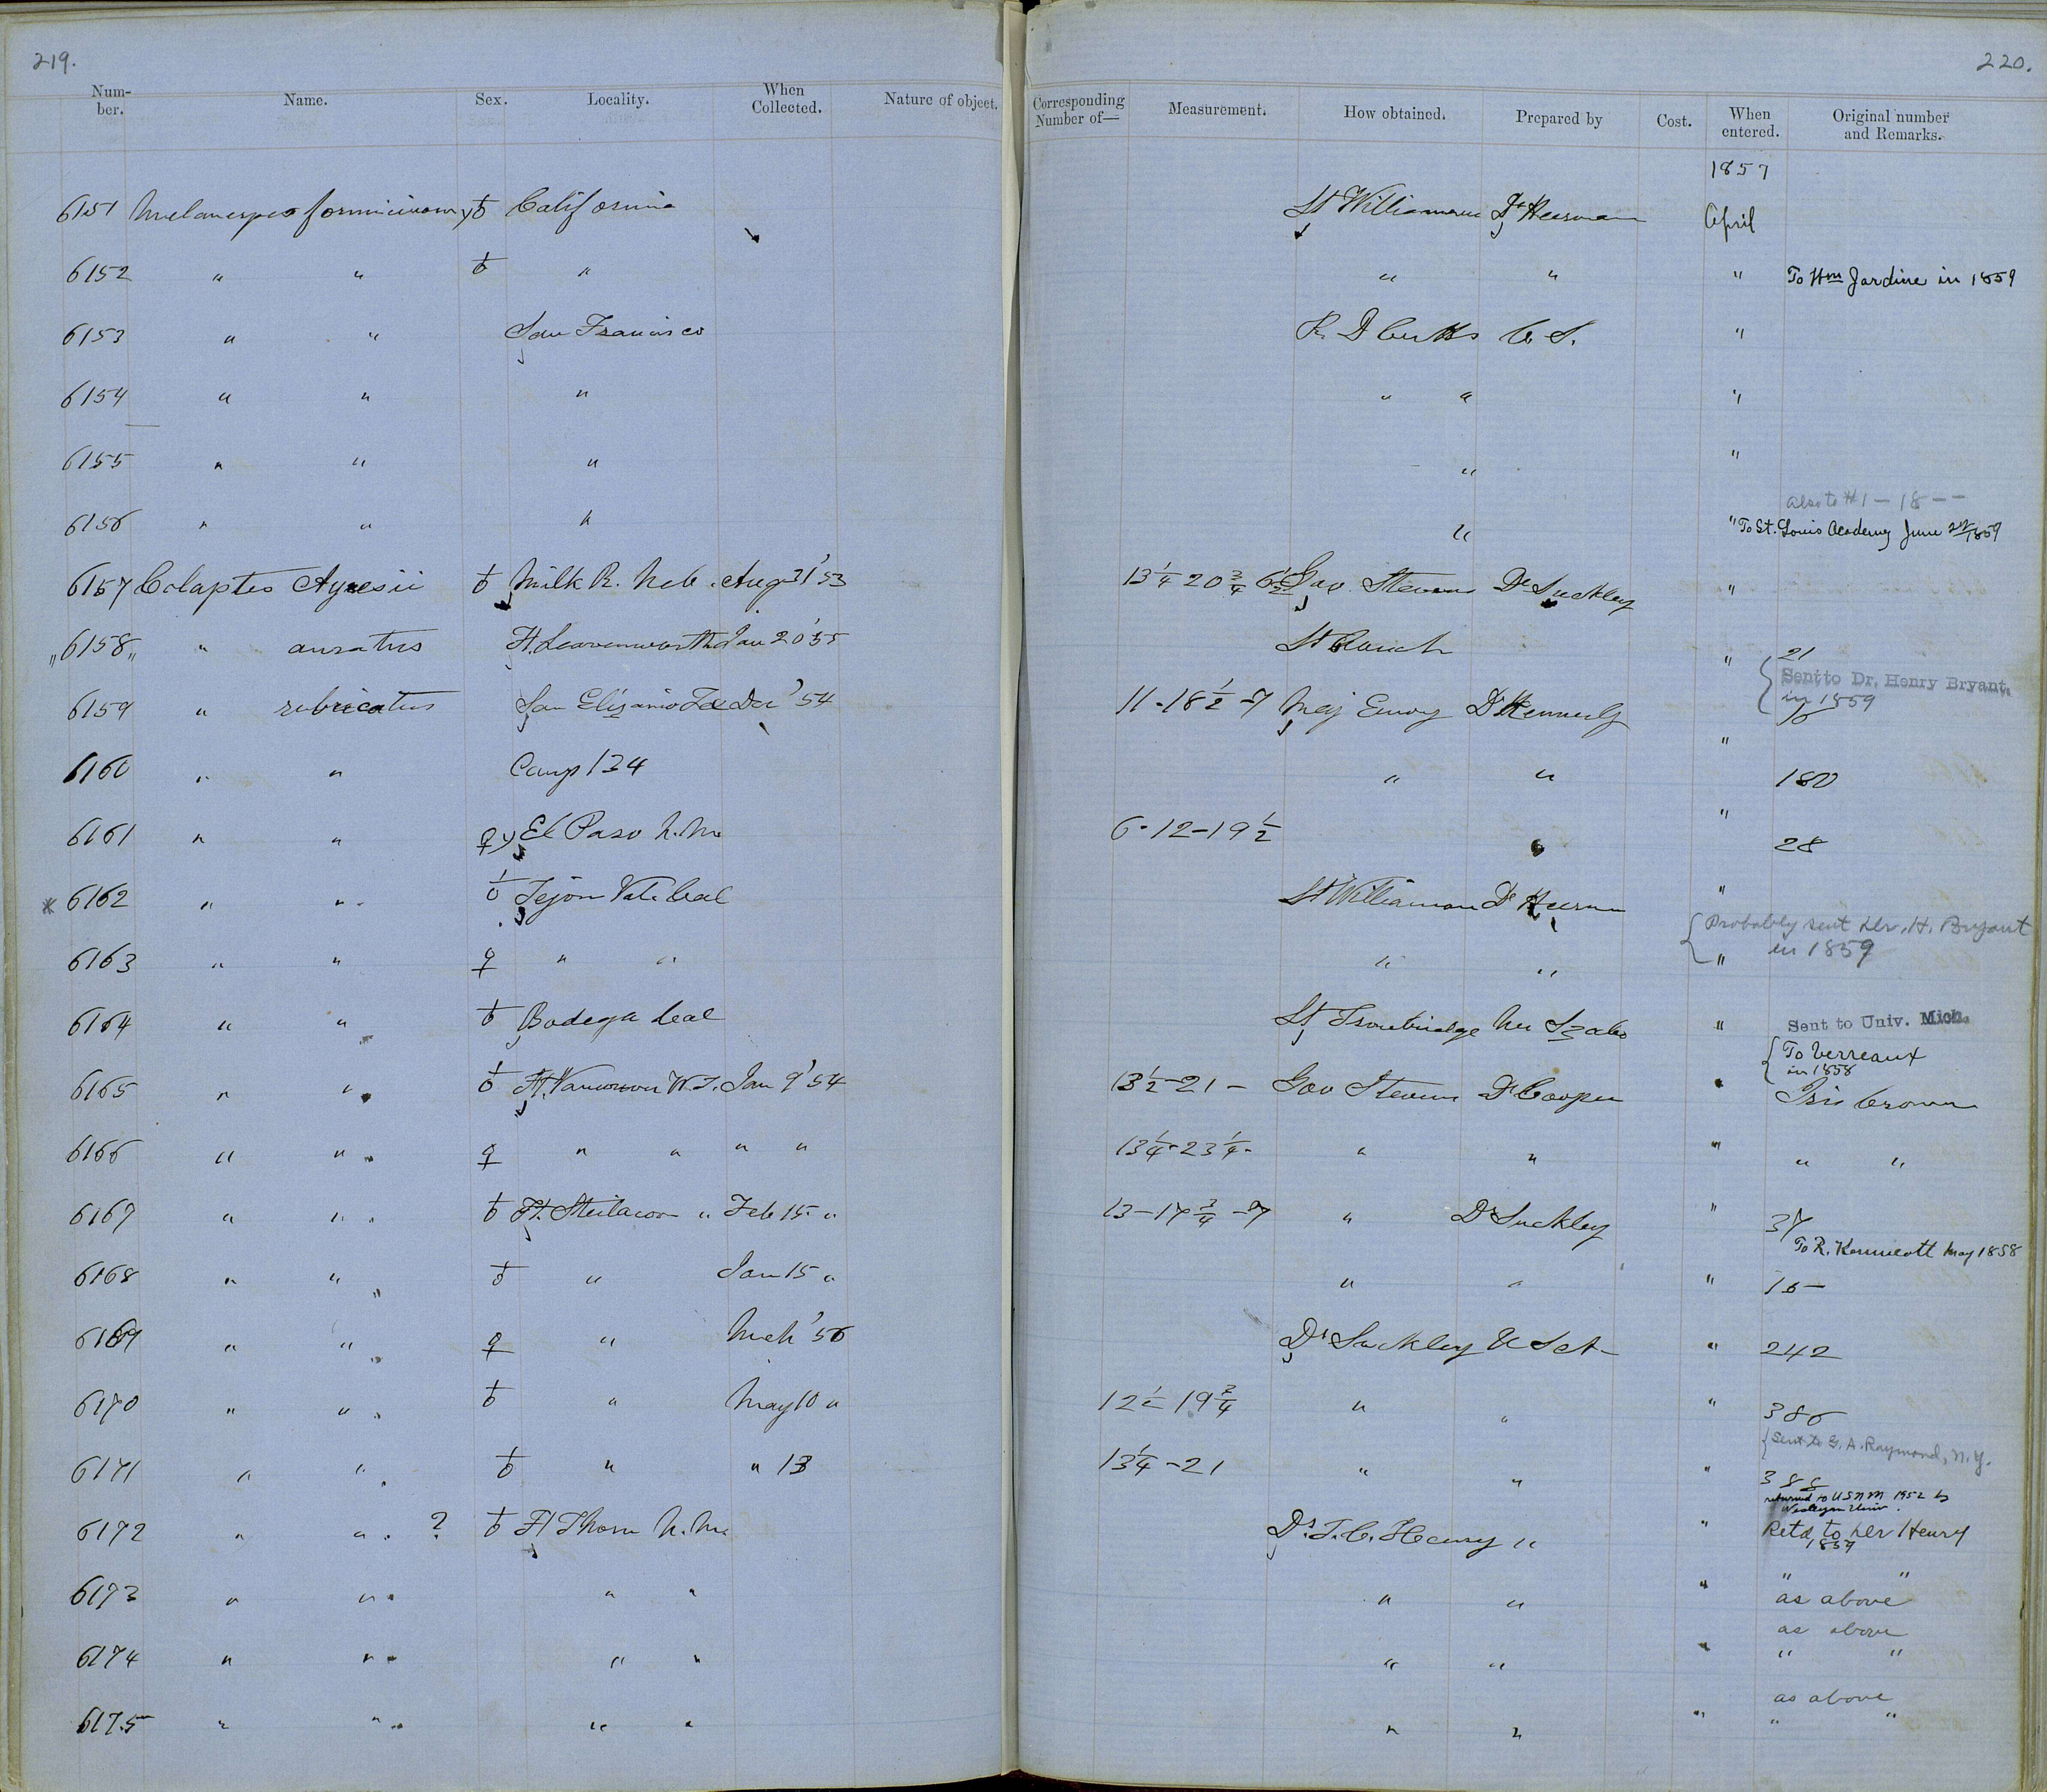 219. 220.
Number. Name. Sex. Locality. When Collected. Nature of object. Corresponding Number of— Measurement. How obtained. Prepared by Cost. When entered. Original number and Remarks.
1857
6151 Melanerpes formicivorus ♂ California Lt Williamson Dr Heerman April
6152 " " ♂ " " " " To Wm Jardine in 1859
6153 " " San Francisco R. D Cutts C. S. "
6154 " " " " " "
6155 " " " " "
Also to #1 — 18 — —
6156 " " " " " To St. Louis Academy June 1859
6157 Colaptes Ayresii ♂ Milk R. Neb. Aug 31 '53 13 1/4 20 3/4 6 1/2 Gov. Stevens Dr Suckley "
" 6158 " " auratus Ft. Leavenworth Jan 20 '55 Lt Couch " 21
Sent to Dr. Henry Bryant.
in 1859
6159 " rubricatus San Elizario Tex Dec '54 11 - 18 1/2 - 7 Maj Emory Dr Kennerly
6160 " " Camp 134 " " " 180
6161 " " ♀ El Paso N. M. 6 - 12 - 19 1/2 " 28
* 6162 " " ♂ Tejon Val. Cal Lt Williamson Dr Heerman "
Probably sent Dr. H. Bryant
in 1859
6163 " " ♀ " " " " "
6164 " " ♂ Bodega Cal Lt Trowbridge Mr Szabo " Sent to Univ. Mich.
To Verreaux
in 1858
6165 " " ♂ Ft. Vancouver W. T. Jan 9 '54 13 1/2 - 21 - Gov Stevens Dr Cooper " Iris brown
6166 " " ♀ " " " " 13 1/4 - 23 1/4 - " " " " "
6167 " " ♂ Ft. Steilacoom " Feb 15 " 13 - 17 3/4 - 7 " Dr Suckley " 37
To R. Kennicott May 1858
6168 " " ♂ " Jan 15 " " " " 16 —
6169 " " ♀ " Mch '56 Dr Suckley U S A - " 242
6170 " " ♂ " May 10 " 12 1/2 19 3/4 " " " 386
Sent to G. A. Raymond, N. Y.
6171 " " ♂ " " 13 13 1/4 - 21 " " " 388
returned to USNM 1952 by
Wesleyan Univ.
6172 " " ? ♂ Ft Thorn N. M. Dr. T. C. Henry " " Retd to Dr Henry
1859
" "
6173 " " " " " " " as above
as above
6174 " " " " " " " " "
as above
6175 " " " " " " " " "